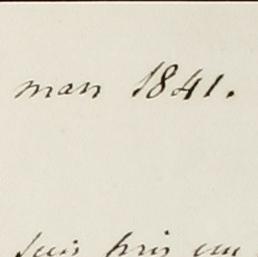 mars 1841.
suis pris un